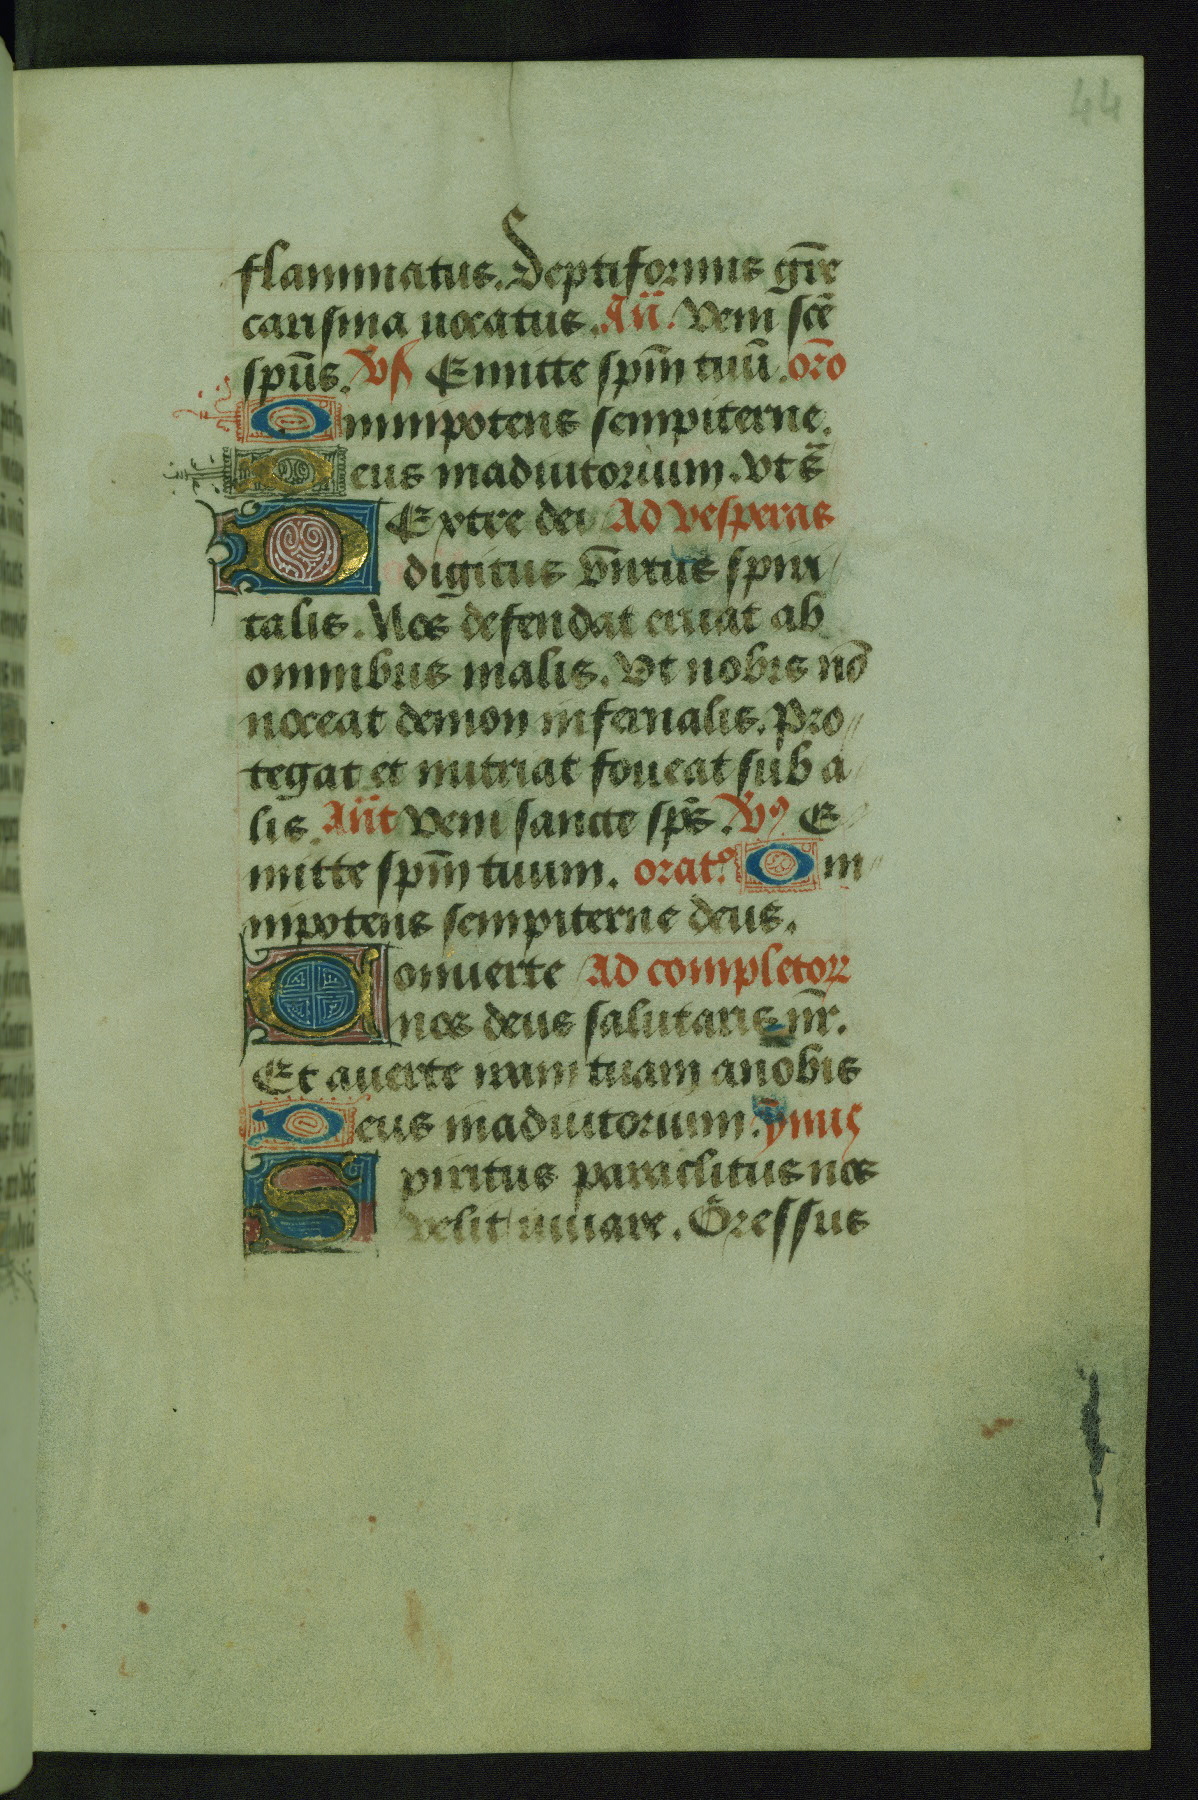 44
flammatus. Septiformis gr̄e
carisma uocatus. Añ. Veni sc̄e
spūs. Vs Emitte spm̄ tuū. or̄o
Omnipotens sempiterne.
Deus inadiutorium. vt s̄
DExtre dei Ad vesperas
digitus v̄irtus spiri
talis. Nos defendat eruat ab
omnibus malis. Vt nobis nō
noceat demon infernalis. Pro
tegat et nutriat foueat sub a
lis. Añt Veni sancte sp̄s. V⁹ E
mitte spm̄ tuum. orat°. Om
nipotens sempiterne deus.
Conuerte Ad completor
nos deus salutaris nr̄.
Et auerte iram tuam anobis
Deus inadiutorium. ymus
Spiritus paraclitus nos
velit iuuare. Gressus